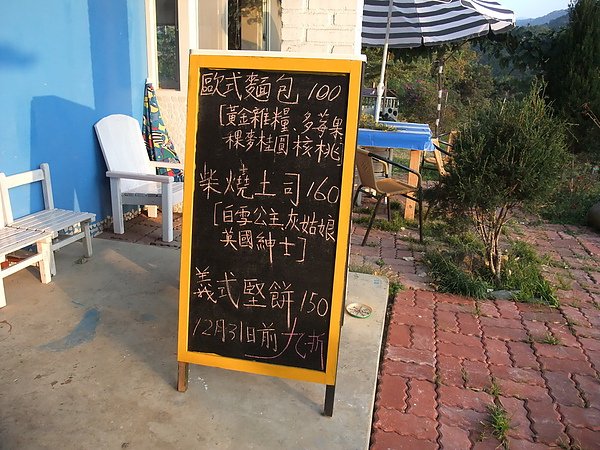 歐式麵包 100
[黃金雜糧、多莓果
稞麥桂圓核桃]
柴燒土司 160
[白雪公主、灰姑娘
美國紳士]
義式堅餅 150
12月31日前九折